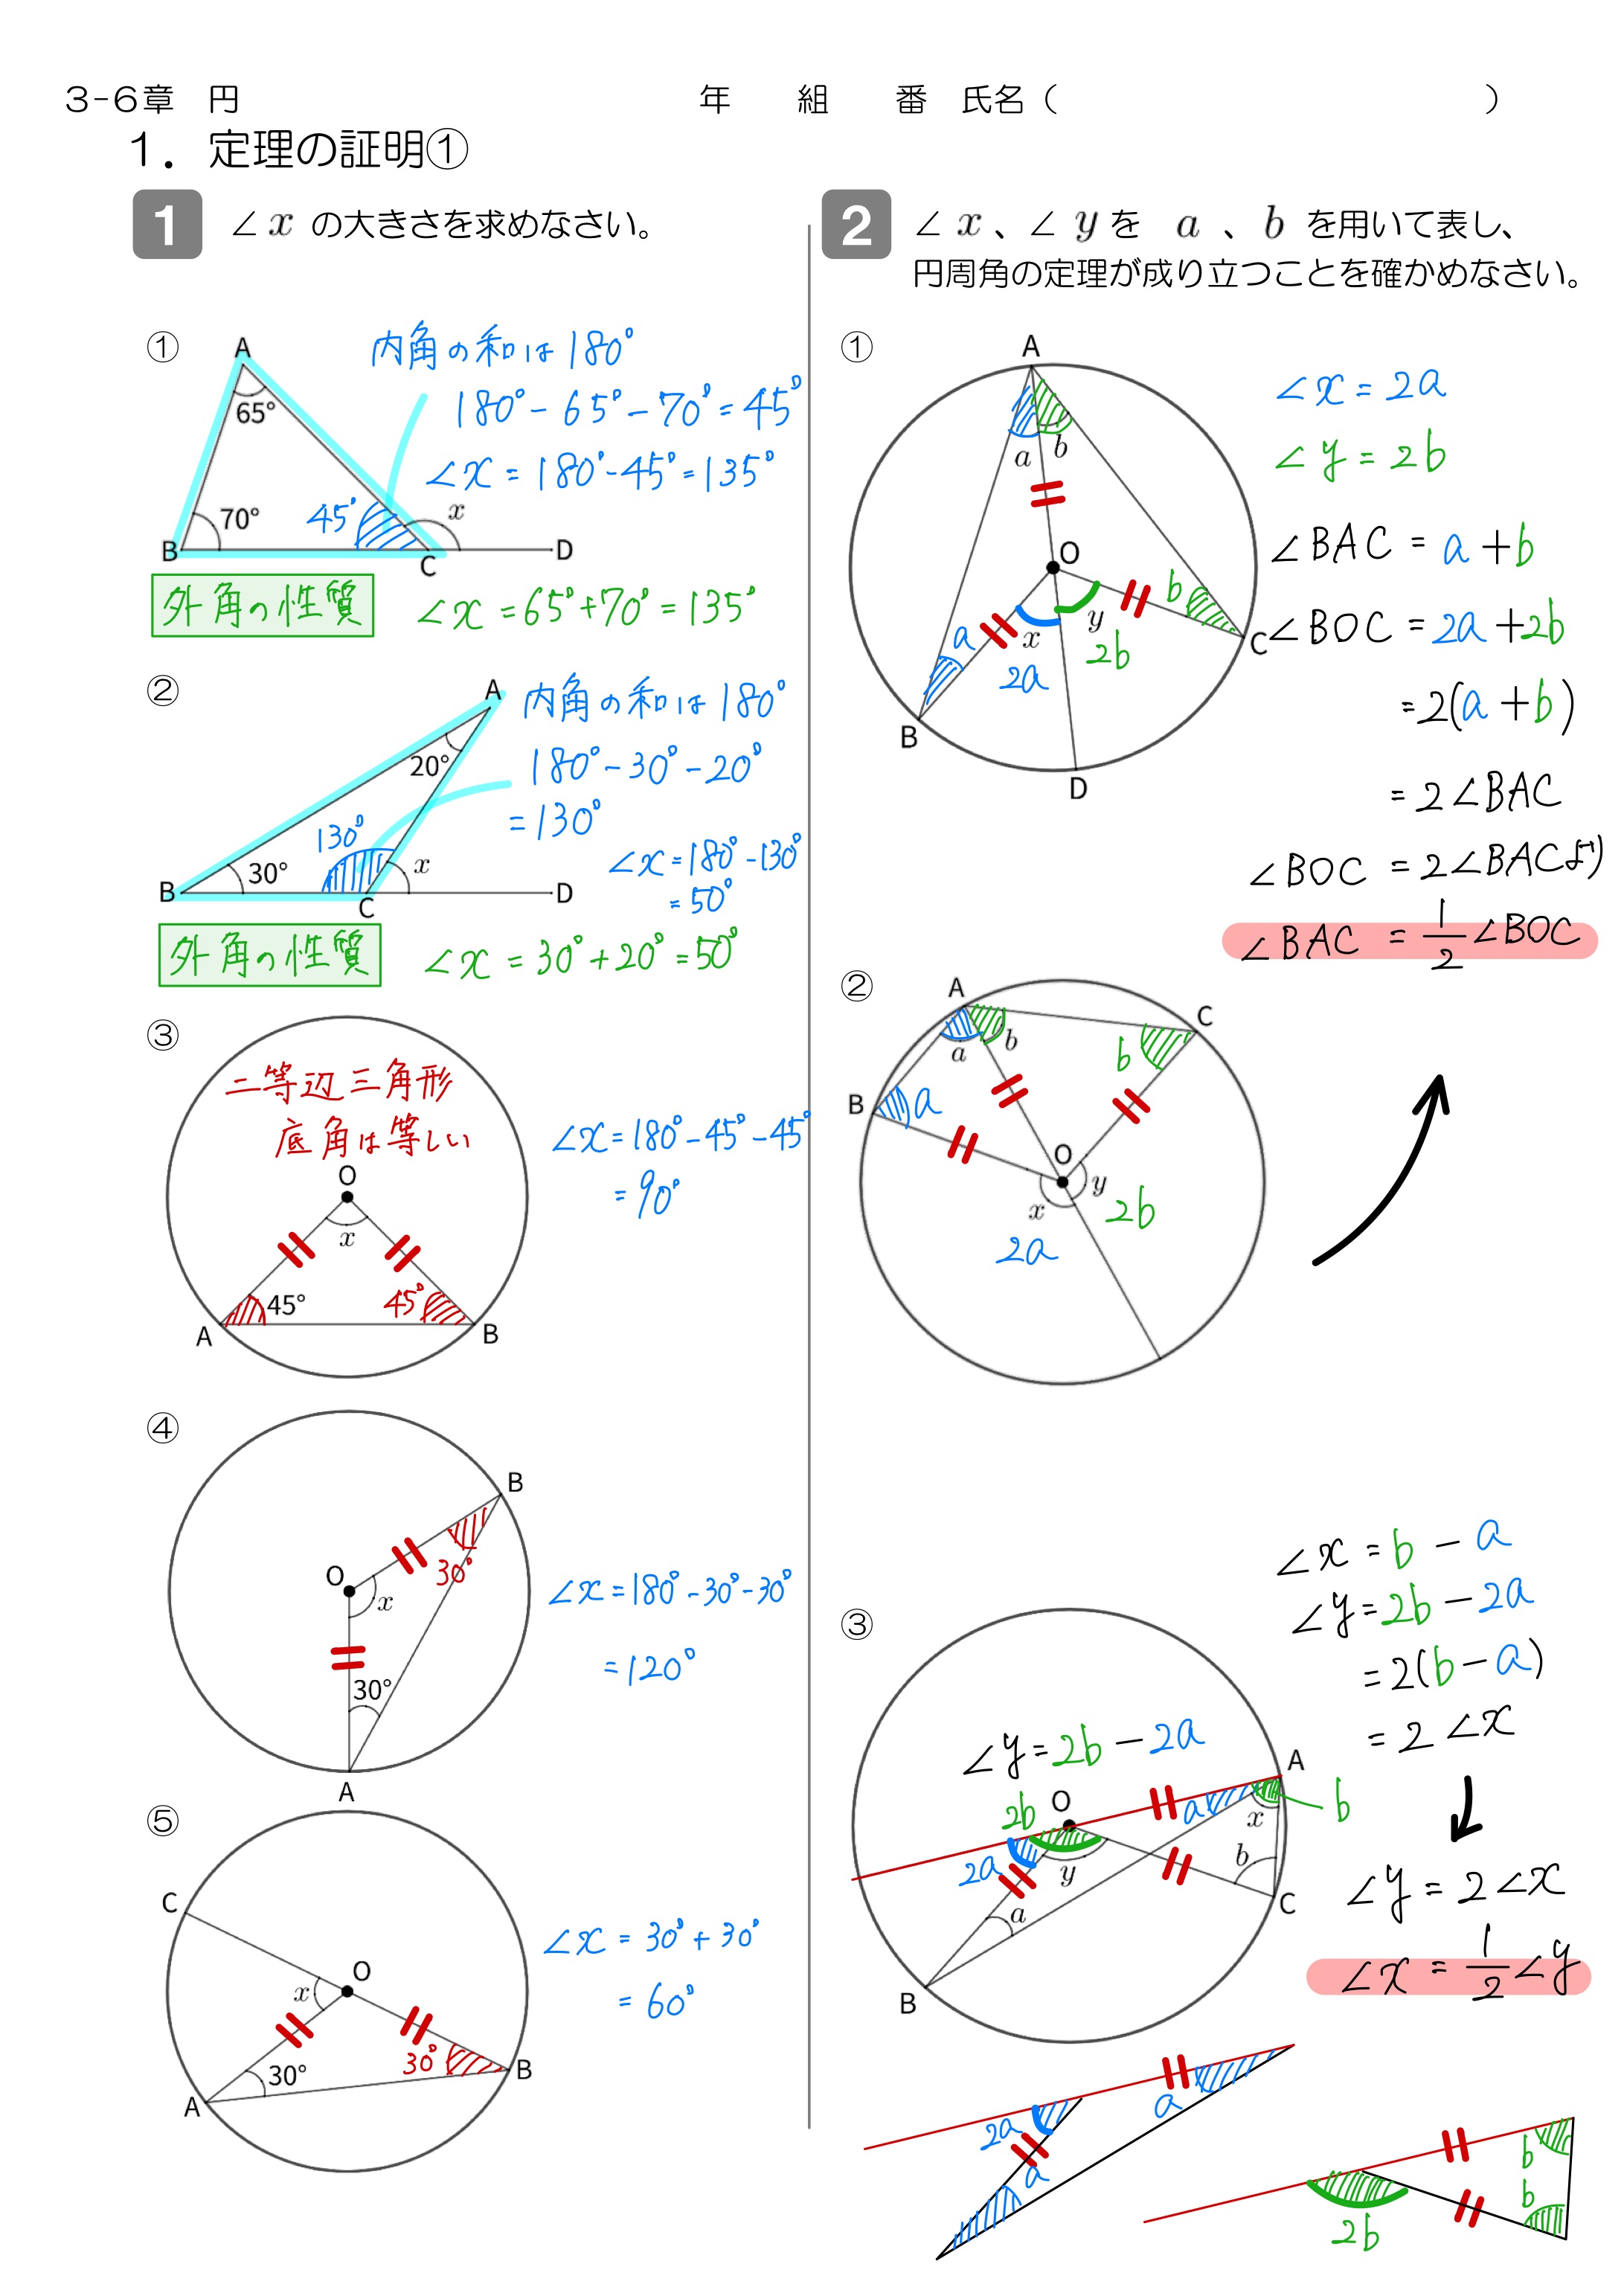 3-6章 円 年 組 番 氏名( )
1. 定理の証明①
1 ∠x の大きさを求めなさい。
①
A
65°
70°
45°
x
B
C
D
内角の和は180°
180°-65°-70°=45°
∠x=180°-45°=135°
外角の性質 ∠x=65°+70°=135°
②
A
20°
130°
30°
x
B
C
D
内角の和は180°
180°-30°-20°
=130°
∠x=180°-130°
=50°
外角の性質 ∠x=30°+20°=50°
③
二等辺三角形
底角は等しい
O
x
45°
45°
A
B
∠x=180°-45°-45°
=90°
④
B
O
30°
x
30°
A
∠x=180°-30°-30°
=120°
⑤
C
O
x
30°
30°
B
A
∠x=30°+30°
=60°
2 ∠x、∠yを a、b を用いて表し、
円周角の定理が成り立つことを確かめなさい。
①
A
a
b
O
b
a
x
y
2a
2b
B
C
D
∠x=2a
∠y=2b
∠BAC=a+b
∠BOC=2a+2b
=2(a+b)
=2∠BAC
∠BOC=2∠BACより
∠BAC=1/2∠BOC
②
A
C
a
b
b
B
a
O
x
y
2b
2a
③
∠x=b-a
∠y=2b-2a
=2(b-a)
=2∠x
∠y=2∠x
∠x=1/2∠y
∠y=2b-2a
A
O
2b
a
b
x
2a
y
b
C
a
B
a
2a
a
b
b
2b